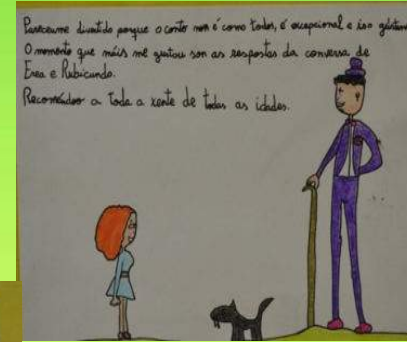 Pareceume divertido porque o conto non é como todos, é excepcional e iso gústame
O momento que máis me gustou son as respostas da conversa de
Erea e Rubicundo.
Recoméndoo a toda a xente de todas as idades.